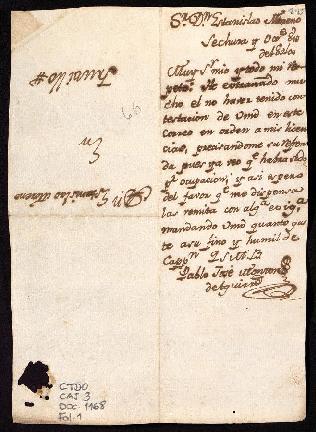 Sr. Dn. Estanislao Moreno
Sechura y Oce 
Muy Sr mio y todo mi res
peto: He extrañado mu
cho el no haver tenido con
testacion de Vmd en este
Correo en orden a mis licen
cias, precisandome su respues
ta pues ya veo qe havra sido
pr ocupacion, y asi espero
del favor qe me dispensa
las remita con alga
mandando Vmd quanto gus
te a su fino y humilde
Cappn Q S M B
Pablo José
de Aguirre
Dn Estanislao Moreno
En
Truxillo
CTDO
CAJ 3
DOC 1168
Fol. 1